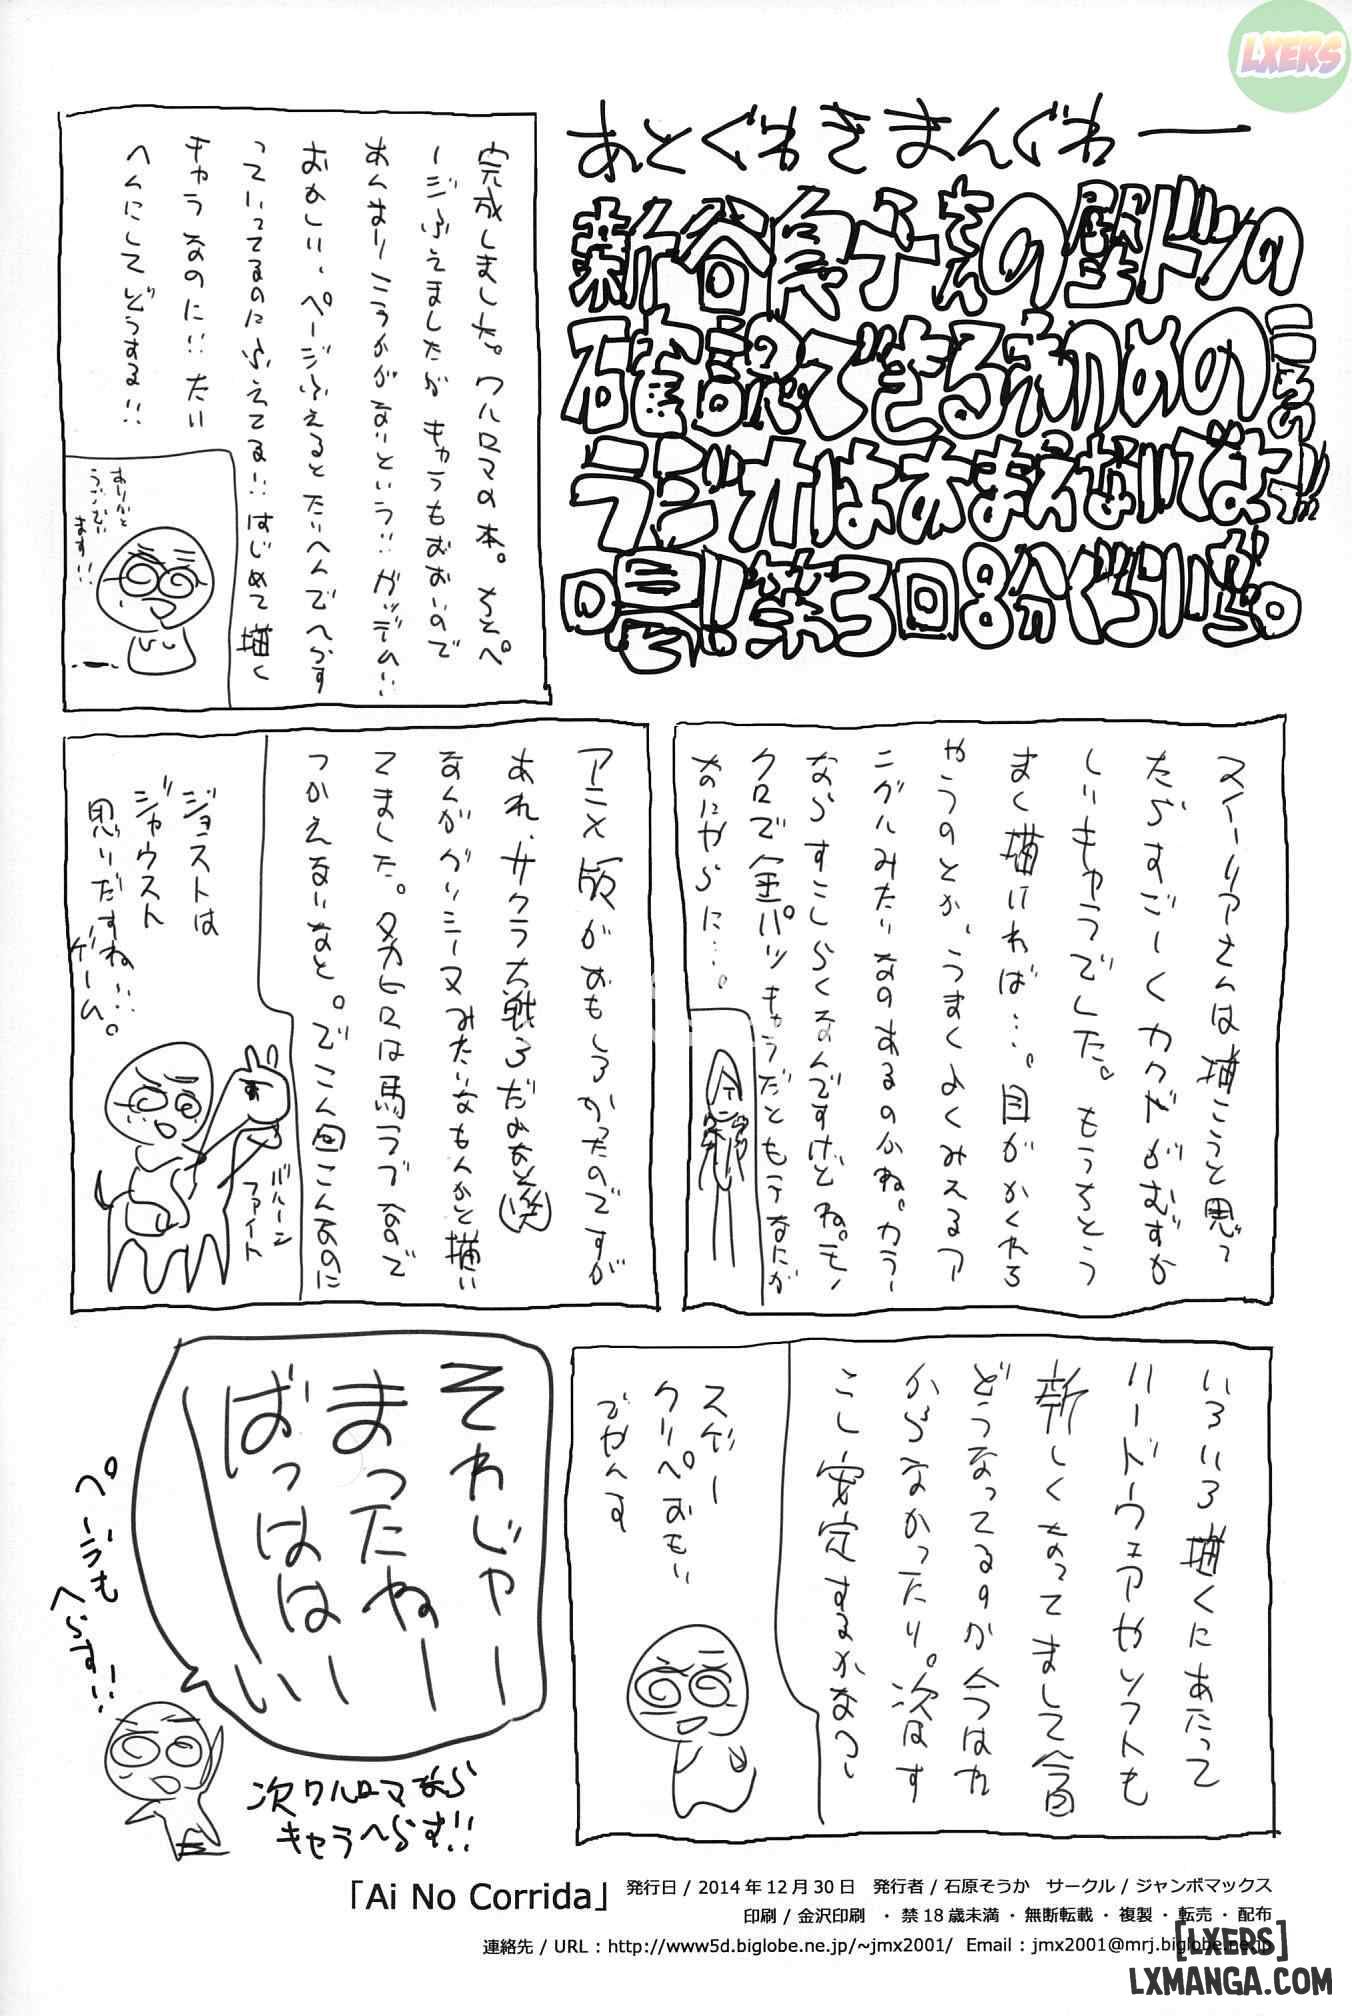 LXERS
あとぐわきまんぐわー
新谷良子さんの壁ドンの
確認できる初めの
ラジオはおまえないでよっ!!
第3回8分ぐらいから。
完成しました。ワルロマの本。ちとペ
ージふえましたがキャラもおおいので
あんまりこうかがないという!!ガッデム!!
おかしい、ページふえるとたいへんでへらす
っていってるのにふえてる!!はじめて描く
キャラなのに!!たい
へんにしてどうする!!
ありがと
うござい
ます!!
スイーリアさんは描こうと思って
たらすごーくカクがむずか
しいキャラでした。もうちとう
まく描ければ…。目がかくれる
やうのとか、うまくよくみえるア
ングルみたいなのあるのかね。カラー
ならすこしらくなんですけどね。モノ
クロで金パツキャラだともうなにが
なにやらに…。
アニメ版がおもしろかったのですが
あれ、サクラ大戦3だよなと(笑)
なんかグリシーヌみたいなもんかと描い
てました。タカヒロは馬ラブなので
つかえないなと。でこん回こんなのに
ジョストは
ジャウスト
思いだすね…
ゲーム。
バルーン
ファイト
いろいろ描くにあたって
ハードウェアやソフトも
新しくなってまして今回
どうなってるのか今はわ
からなかったり。次はす
こし安定するかなっ
スゲー
クソペおもい
でやんす
それじゃー
まったねー
ばっははーい
ページも
へらす!!
次ワルロマなら
キャラへらす!!
「Ai No Corrida」
発行日 / 2014 年 12 月 30 日　発行者 / 石原そうか　サークル / ジャンボマックス
印刷 / 金沢印刷　・禁 18 歳未満・無断転載・複製・転売・配布
連絡先 / URL : http://www5d.biglobe.ne.jp/~jmx2001/ Email : jmx2001@mrj.biglobe.ne.jp
[LXERS]
LXMANGA.COM